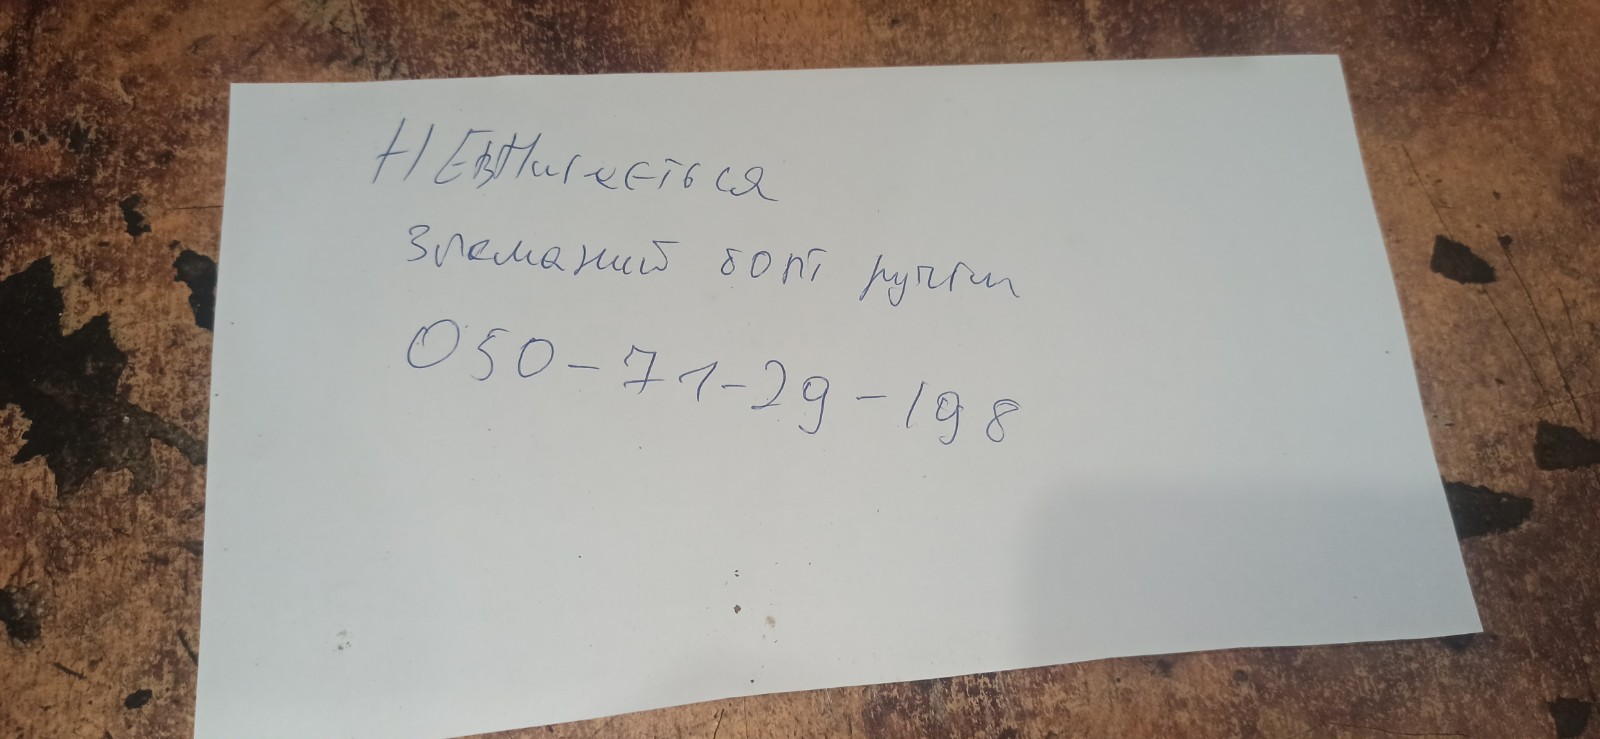 НЕвмикається
Зламаний болт ручки
050-71-29-198